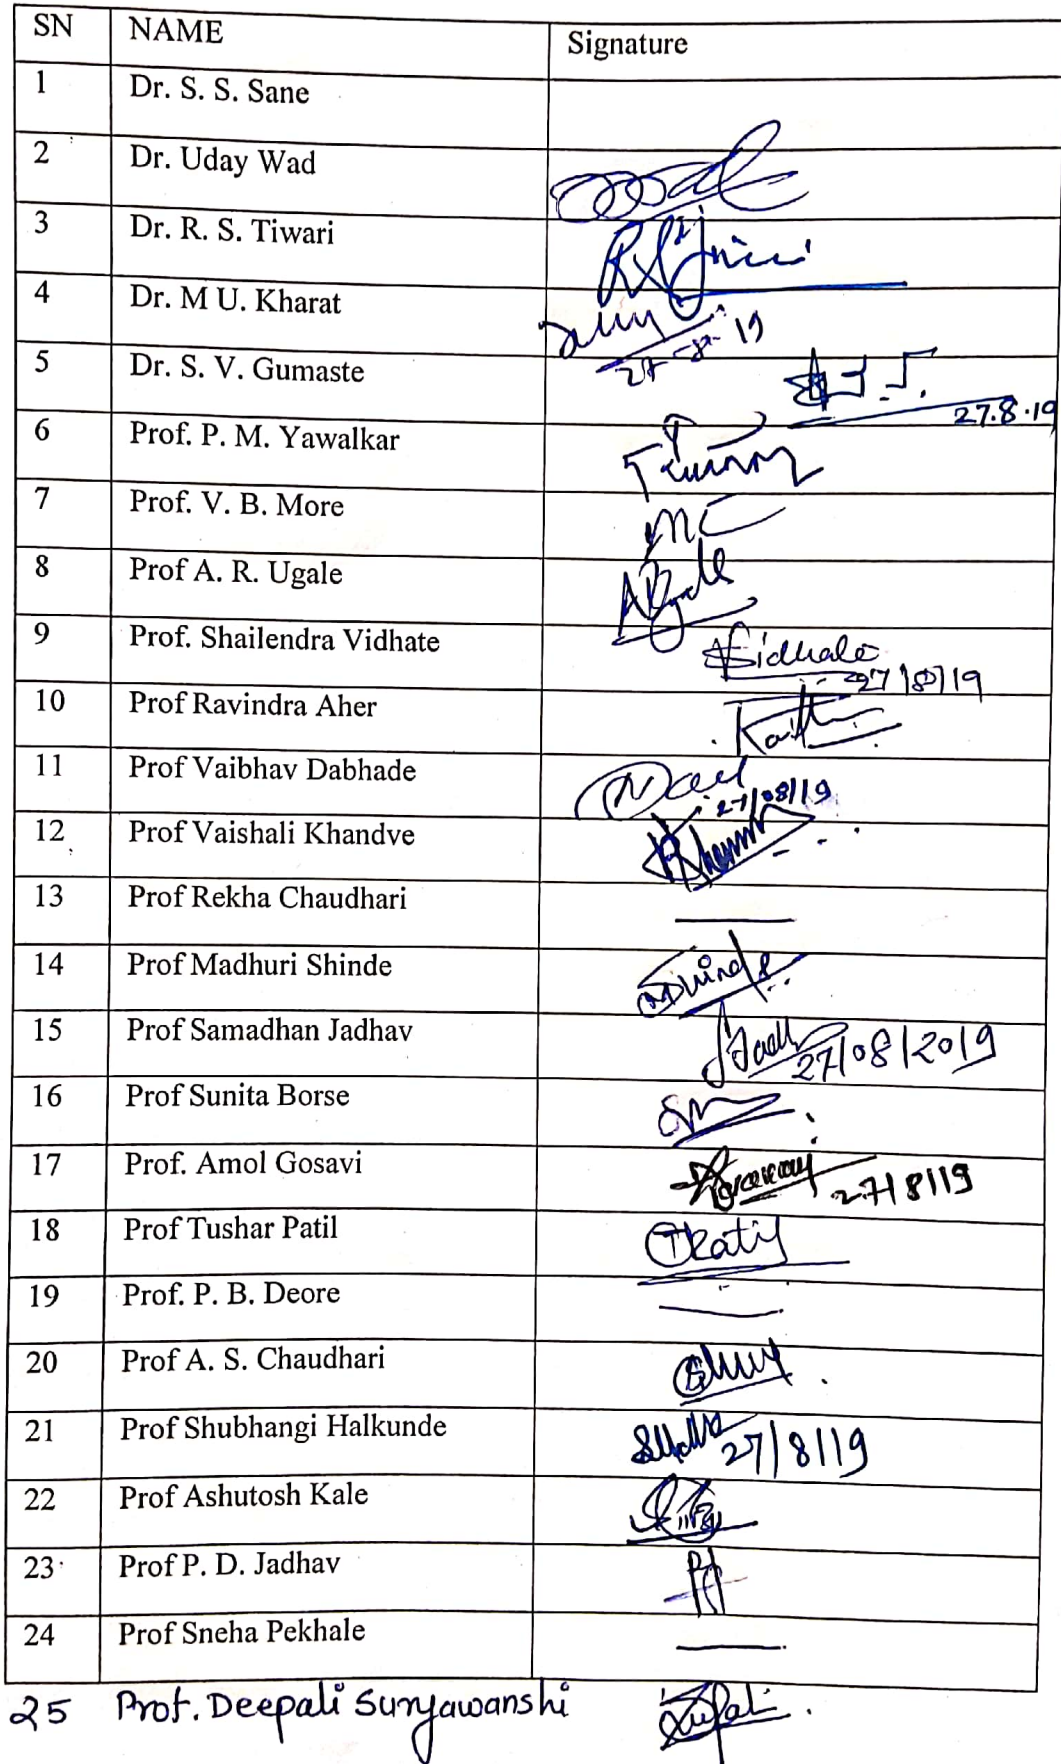 SN NAME Signature
1 Dr. S. S. Sane
2 Dr. Uday Wad
3 Dr. R. S. Tiwari
4 Dr. M U. Kharat
27-8-19
5 Dr. S. V. Gumaste
27.8.19
6 Prof. P. M. Yawalkar
7 Prof. V. B. More
8 Prof A. R. Ugale
9 Prof. Shailendra Vidhate
27/8/19
10 Prof Ravindra Aher
11 Prof Vaibhav Dabhade
27/08/19
12 Prof Vaishali Khandve
13 Prof Rekha Chaudhari
14 Prof Madhuri Shinde
15 Prof Samadhan Jadhav 27/08/2019
16 Prof Sunita Borse
17 Prof. Amol Gosavi 27/8/19
18 Prof Tushar Patil TPatil
19 Prof. P. B. Deore
20 Prof A. S. Chaudhari
21 Prof Shubhangi Halkunde 27/8/19
22 Prof Ashutosh Kale
23 Prof P. D. Jadhav
24 Prof Sneha Pekhale
25 Prof. Deepali Suryawanshi